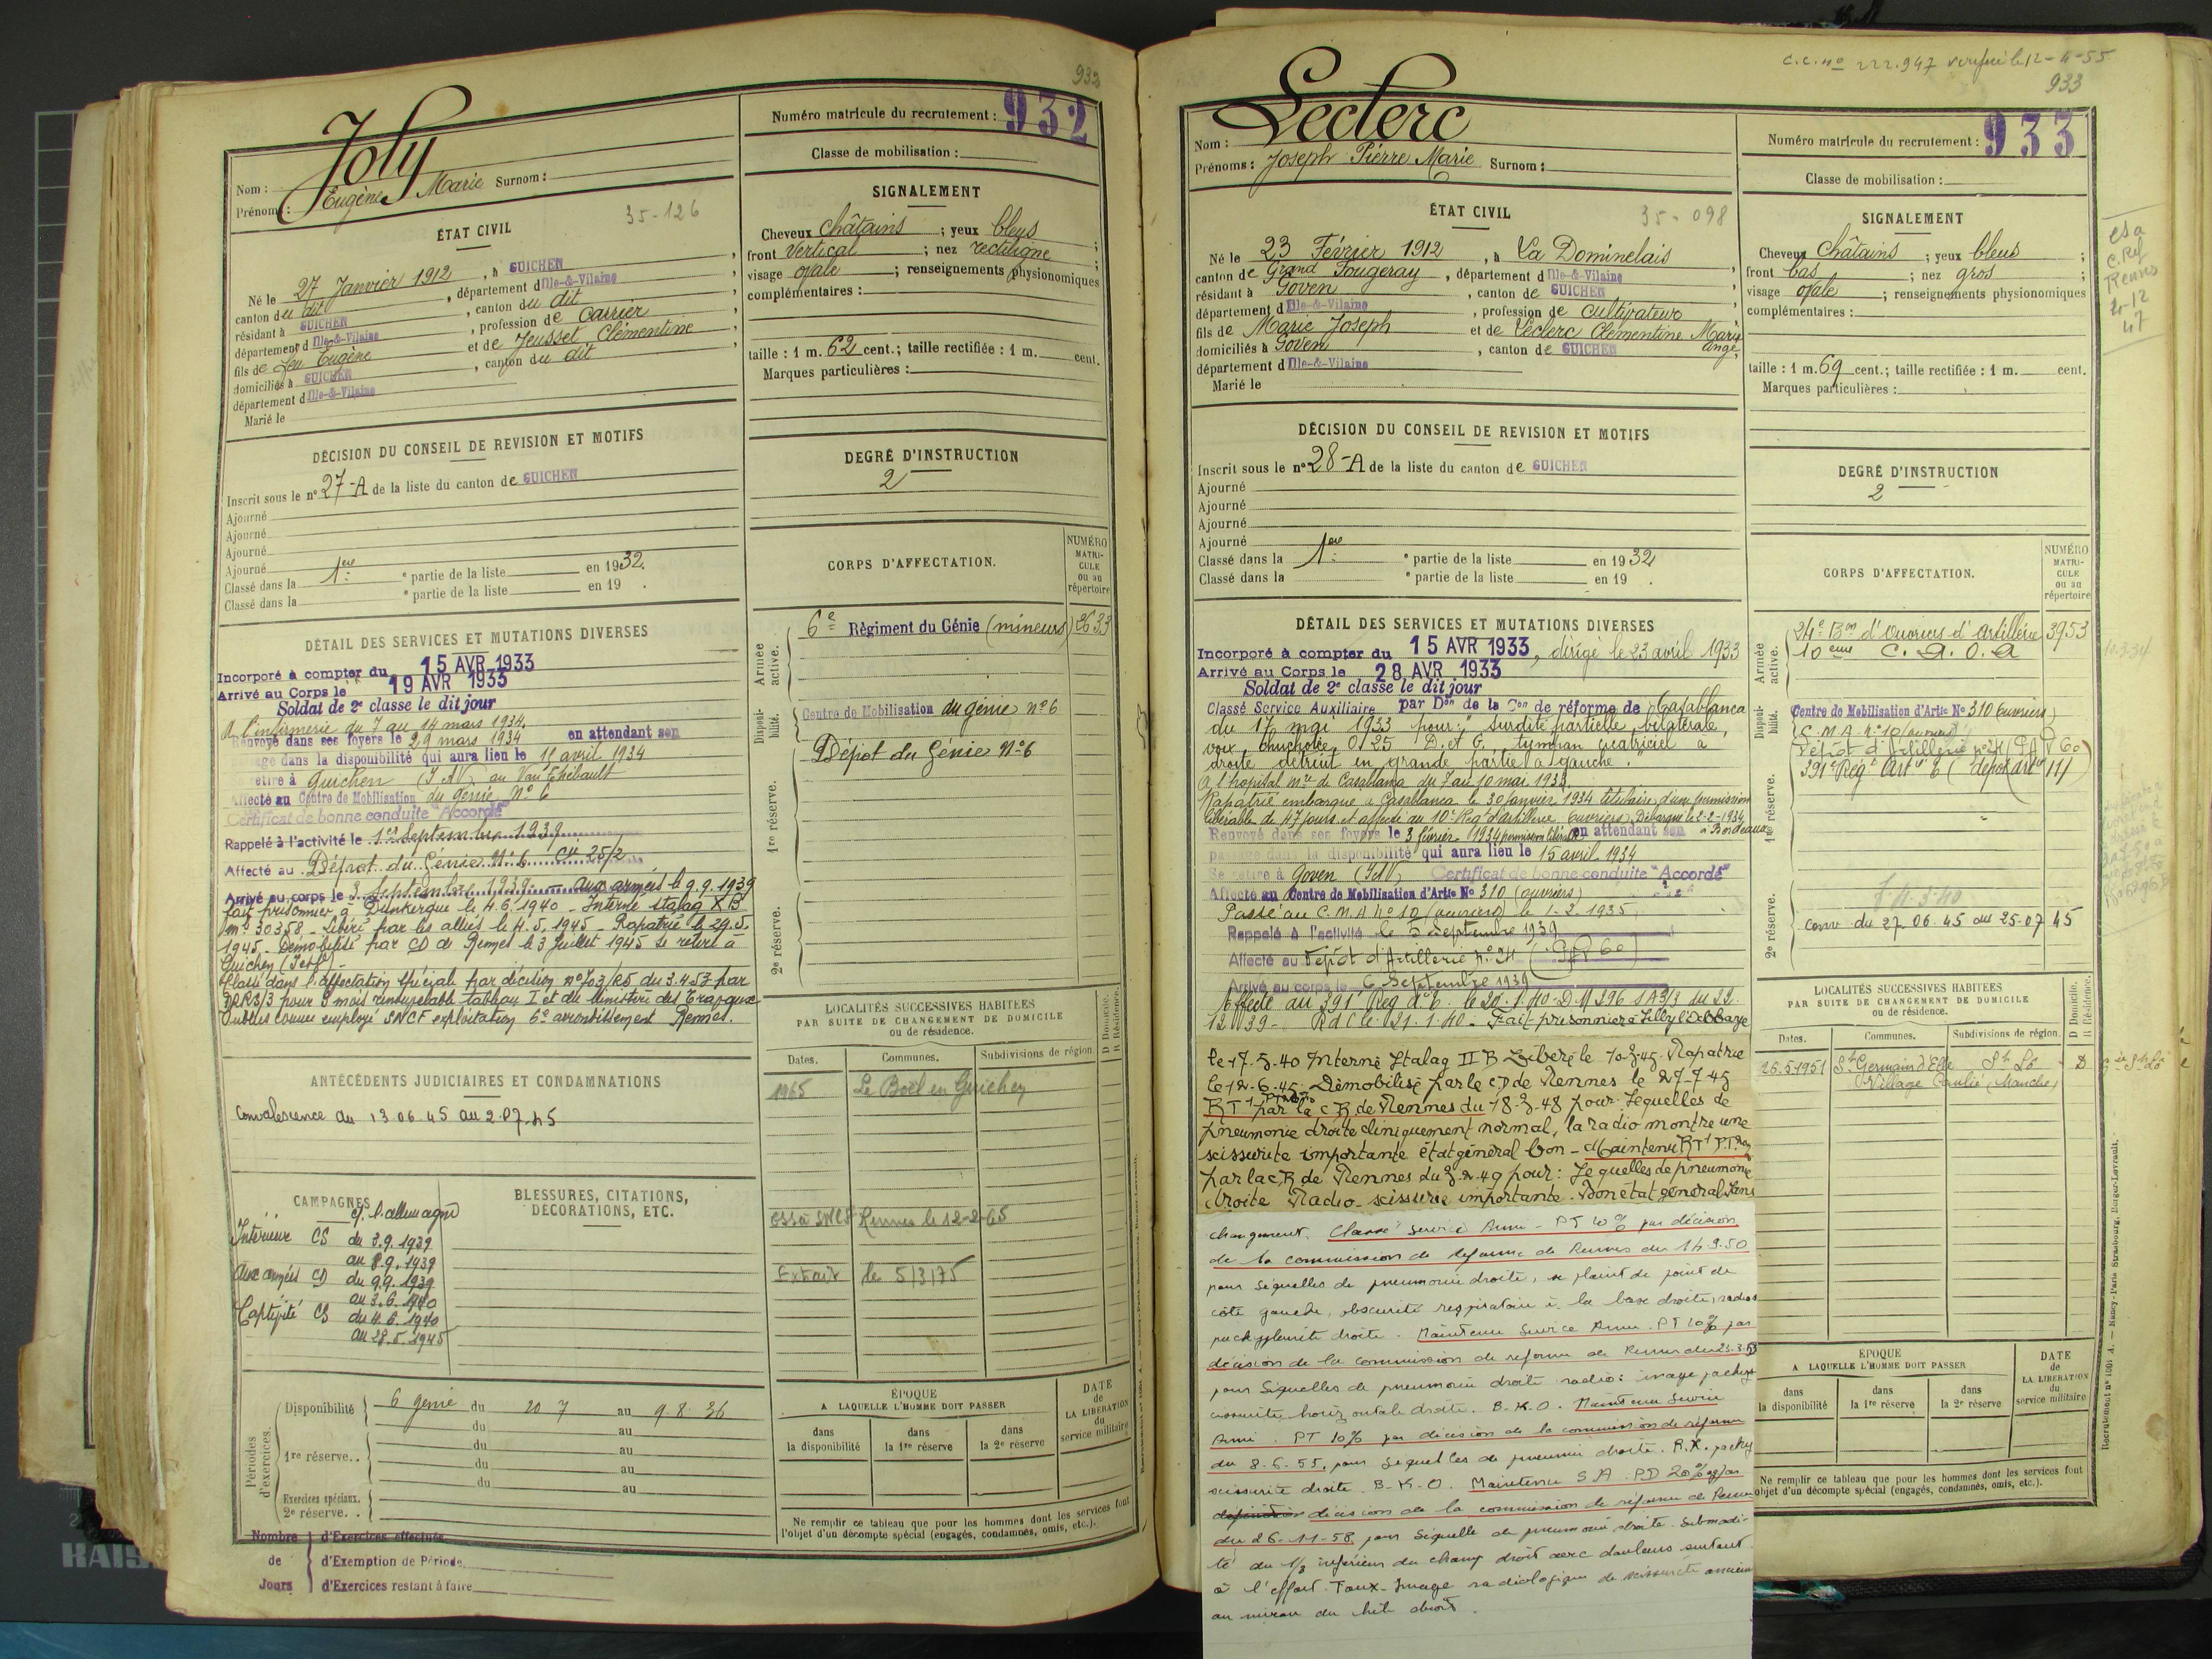 932
Joly
Nom :
Prénoms : Eugène Marie Surnom :
Numéro matricule du recrutement : 932
Classe de mobilisation :
ÉTAT CIVIL
35-126
Né le 27 Janvier 1912, à GUICHEN
canton du dit, département d Ille-&-Vilaine,
résidant à GUICHEN, canton du dit
département d Ille-&-Vilaine, profession de Carrier
fils de feu Eugène et de Jeusset Clémentine,
domiciliés à GUICHEN, canton du dit
département d Ille-&-Vilaine
Marié le
SIGNALEMENT
Cheveux châtains ; yeux bleus ;
front vertical ; nez rectiligne ;
visage ovale ; renseignements physionomiques
complémentaires :
taille : 1 m. 62 cent.; taille rectifiée : 1 m. cent.
Marques particulières :
DÉCISION DU CONSEIL DE REVISION ET MOTIFS
Inscrit sous le n° 27-A de la liste du canton de GUICHEN
Ajourné
Ajourné
Ajourné
Ajourné
Classé dans la 1ère e partie de la liste en 1932.
Classé dans la e partie de la liste en 19 .
DEGRÉ D'INSTRUCTION
2
CORPS D'AFFECTATION.
NUMÉRO MATRI-CULE ou au répertoire
Armée active.
6e Règiment du Génie (mineurs) 2633
Disponi-bilité.
Centre de Mobilisation du génie n° 6
1re réserve.
Dépot du Génie N°6
2e réserve.
DÉTAIL DES SERVICES ET MUTATIONS DIVERSES
Incorporé à compter du 15 AVR 1933
Arrivé au Corps le 19 AVR 1933
Soldat de 2e classe le dit jour
A l'infirmerie du 7 au 14 mars 1934.
Renvoyé dans ses foyers le 29 mars 1934 en attendant son
passage dans la disponibilité qui aura lieu le 15 avril 1934
Se retire à Guichen (I&V) au Van Thébault
Affecté au Centre de Mobilisation du génie N° 6
Certificat de bonne conduite "Accordé"
Rappelé à l'activité le 1er Septembre 1939
Affecté au Dépot du Génie N°6 Cie 25/2
Arrivé au corps le 3 Septembre 1939 - aux armées le 9.9.1939
fait prisonnier à Dunkerque le 4.6.1940 - Interné stalag X B
m° 30358 - Libéré par les alliés le 4.5.1945 - Rapatrié le 29.5.
1945 - Démobilisé par CD de Rennes le 3 Juillet 1945 se retire à
Guichen
Classé dans l'affectation spéciale par décision n° 703/RS du 3.4.53 par
pour 9 mois renouvelable tableau I et du Ministère des Travaux
Publics comme employé SNCF exploitation 6e arrondissement Rennes.
LOCALITÉS SUCCESSIVES HABITÉES
PAR SUITE DE CHANGEMENT DE DOMICILE
ou de résidence.
Dates. Communes. Subdivisions de région. D Domicile. R Résidence.
1965 Le Boël en Guichen
SNCF Rennes le 12-2-65
Extrait le 5/3/75
ANTÉCÉDENTS JUDICIAIRES ET CONDAMNATIONS
Convalescence du 13.06.45 au 2.07.45
CAMPAGNES
c/ l'allemagne
Intérieur CS du 3.9.1939
au 8.9.1939
Aux armées CD du 9.9.1939
au 3.6.1940
Captivité CS du 4.6.1940
au 28.5.1945
BLESSURES, CITATIONS,
DÉCORATIONS, ETC.
Périodes d'exercices.
Disponibilité 6 génie du 20 7 au 9.8.36
du au
1re réserve. . du au
du au
Exercices spéciaux. du au
2e réserve. .
Nombre de Jours
d'Exercices effectués
d'Exemption de Période
d'Exercices restant à faire
ÉPOQUE
A LAQUELLE L'HOMME DOIT PASSER
dans la disponibilité
dans la 1re réserve
dans la 2e réserve
DATE de LA LIBÉRATION du service militaire
Ne remplir ce tableau que pour les hommes dont les services font
l'objet d'un décompte spécial (engagés, condamnés, omis, etc.).
C.C. n° 222.947 vérifié le 12-4-55
933
Leclerc
Nom :
Prénoms : Joseph Pierre Marie Surnom :
Numéro matricule du recrutement : 933
Classe de mobilisation :
ÉTAT CIVIL
35-098
Né le 23 Février 1912, à La Dominelais
canton de Grand Fougeray, département d Ille-&-Vilaine,
résidant à Goven, canton de GUICHEN
département d Ille-&-Vilaine, profession de cultivateur
fils de Marie Joseph et de Leclerc Clémentine Marie Ange,
domiciliés à Goven, canton de GUICHEN
département d Ille-&-Vilaine
Marié le
SIGNALEMENT
Cheveux châtains ; yeux bleus ;
front bas ; nez gros ;
visage ovale ; renseignements physionomiques
complémentaires :
taille : 1 m. 69 cent.; taille rectifiée : 1 m. cent.
Marques particulières :
Rennes
47
DÉCISION DU CONSEIL DE REVISION ET MOTIFS
Inscrit sous le n° 28-A de la liste du canton de GUICHEN
Ajourné
Ajourné
Ajourné
Ajourné
Classé dans la 1ère e partie de la liste en 1932
Classé dans la e partie de la liste en 19 .
DEGRÉ D'INSTRUCTION
2
CORPS D'AFFECTATION.
NUMÉRO MATRI-CULE ou au répertoire
Armée active.
24e Bon d'Ouvriers d'Artillerie 3953
10ème C.A.O.A
Disponi-bilité.
Centre de Mobilisation d'Artie N° 310 (ouvriers)
C.M.A. n° 10 (ouvriers)
1re réserve.
Dépôt d'Artillerie n° 24 (PAV 60)
391e Reg
2e réserve.
conv du 27.06.45 au 25.07 45
DÉTAIL DES SERVICES ET MUTATIONS DIVERSES
Incorporé à compter du 15 AVR 1933, dirigé le 23 avril 1933
Arrivé au Corps le 28 AVR 1933
Soldat de 2e classe le dit jour
Classé Service Auxiliaire par Don de la Con de réforme de Casablanca
du 17 mai 1933 pour: "Surdité partielle, bilatérale,
voix chuchotée 0.25 D. et G., tympan cicatriciel à
droite détruit en grande partie à gauche."
A l'hopital mre de Casablanca du 7 au 10 mai 1933.
Rapatrié embarqué à Casablanca le 30 Janvier 1934 titulaire d'une permission
libérable de 47 jours et affecté au 10e Reg d'artillerie (ouvriers). Débarqué le 2-2-1934
à Bordeaux
Renvoyé dans ses foyers le 3 février 1934 permission libérable en attendant son
passage dans la disponibilité qui aura lieu le 15 avril 1934
Se retire à Goven (I&V) Certificat de bonne conduite "Accordé"
Affecté au Centre de Mobilisation d'Artie N° 310 (ouvriers)
Passé au C.M.A n° 10 (ouvriers) le 1-2-1935.
Rappelé à l'activité le 5 septembre 1939
Affecté au Dépôt d'Artillerie n° 24 (PAV 60)
Arrivé au corps le 6 Septembre 1939
Affecté au 391e Reg le 20.1.40 D.M 296 S A3/3 du 22.
12.39 - RdC le 21.1.40 - Fait prisonnier à Lilly l'Abbaye
le 17.5.40 Interné Stalag II B Libéré le 10-5-45. Rapatrié
le 12.6.45. Démobilisé par le CD de Rennes le 27-7-45
RT1 par la CR de Rennes du 18-5-48 pour Sequelles de
pneumonie droite cliniquement normal, la radio montre une
scissurite importante état général bon - Maintenu RT1
par la CR de Rennes du 5.2.49 pour: Sequelles de pneumonie
droite Radio-scissurie importante. Bon état général Sans
changement. Classé Service Armé - PT 10 % par décision
de la commission de réforme de Rennes du 14.9.50
pour Séquelles de pneumonie droite, se plaint de point de
côté gauche, obscurité respiratoire à la base droite, radios
pachypleurite droite. Maintenu Service Armé PT 10% par
décision de la commission de réforme de Rennes du 23.3.53
pour Séquelles de pneumonie droite radio: image pachy
scissurite horizontale droite. B.K.O. Maintenu Service
Armé. PT 10% par décision de la commission de réforme
du 8.6.55. pour Sequelles de pneumonie droite. R.X. pachy
scissurite droite B-K-O. Maintenu S A PD 20% par
décision de la commission de réforme de Rennes
du 26-11-58 pour Séquelle de pneumonie droite. Submati-
té du 1/3 inférieur du champ droit avec douleurs surtout
à l'effort. Toux-Image radiologique de scissurite ancienne
au niveau du hile droit.
LOCALITÉS SUCCESSIVES HABITÉES
PAR SUITE DE CHANGEMENT DE DOMICILE
ou de résidence.
Dates. Communes. Subdivisions de région. D Domicile. R Résidence.
26.5.1951 St Germain d'Elle St Lô D
Village (Manche)
ÉPOQUE
A LAQUELLE L'HOMME DOIT PASSER
dans la disponibilité
dans la 1re réserve
dans la 2e réserve
DATE de LA LIBÉRATION du service militaire
Ne remplir ce tableau que pour les hommes dont les services font
objet d'un décompte spécial (engagés, condamnés, omis, etc.).